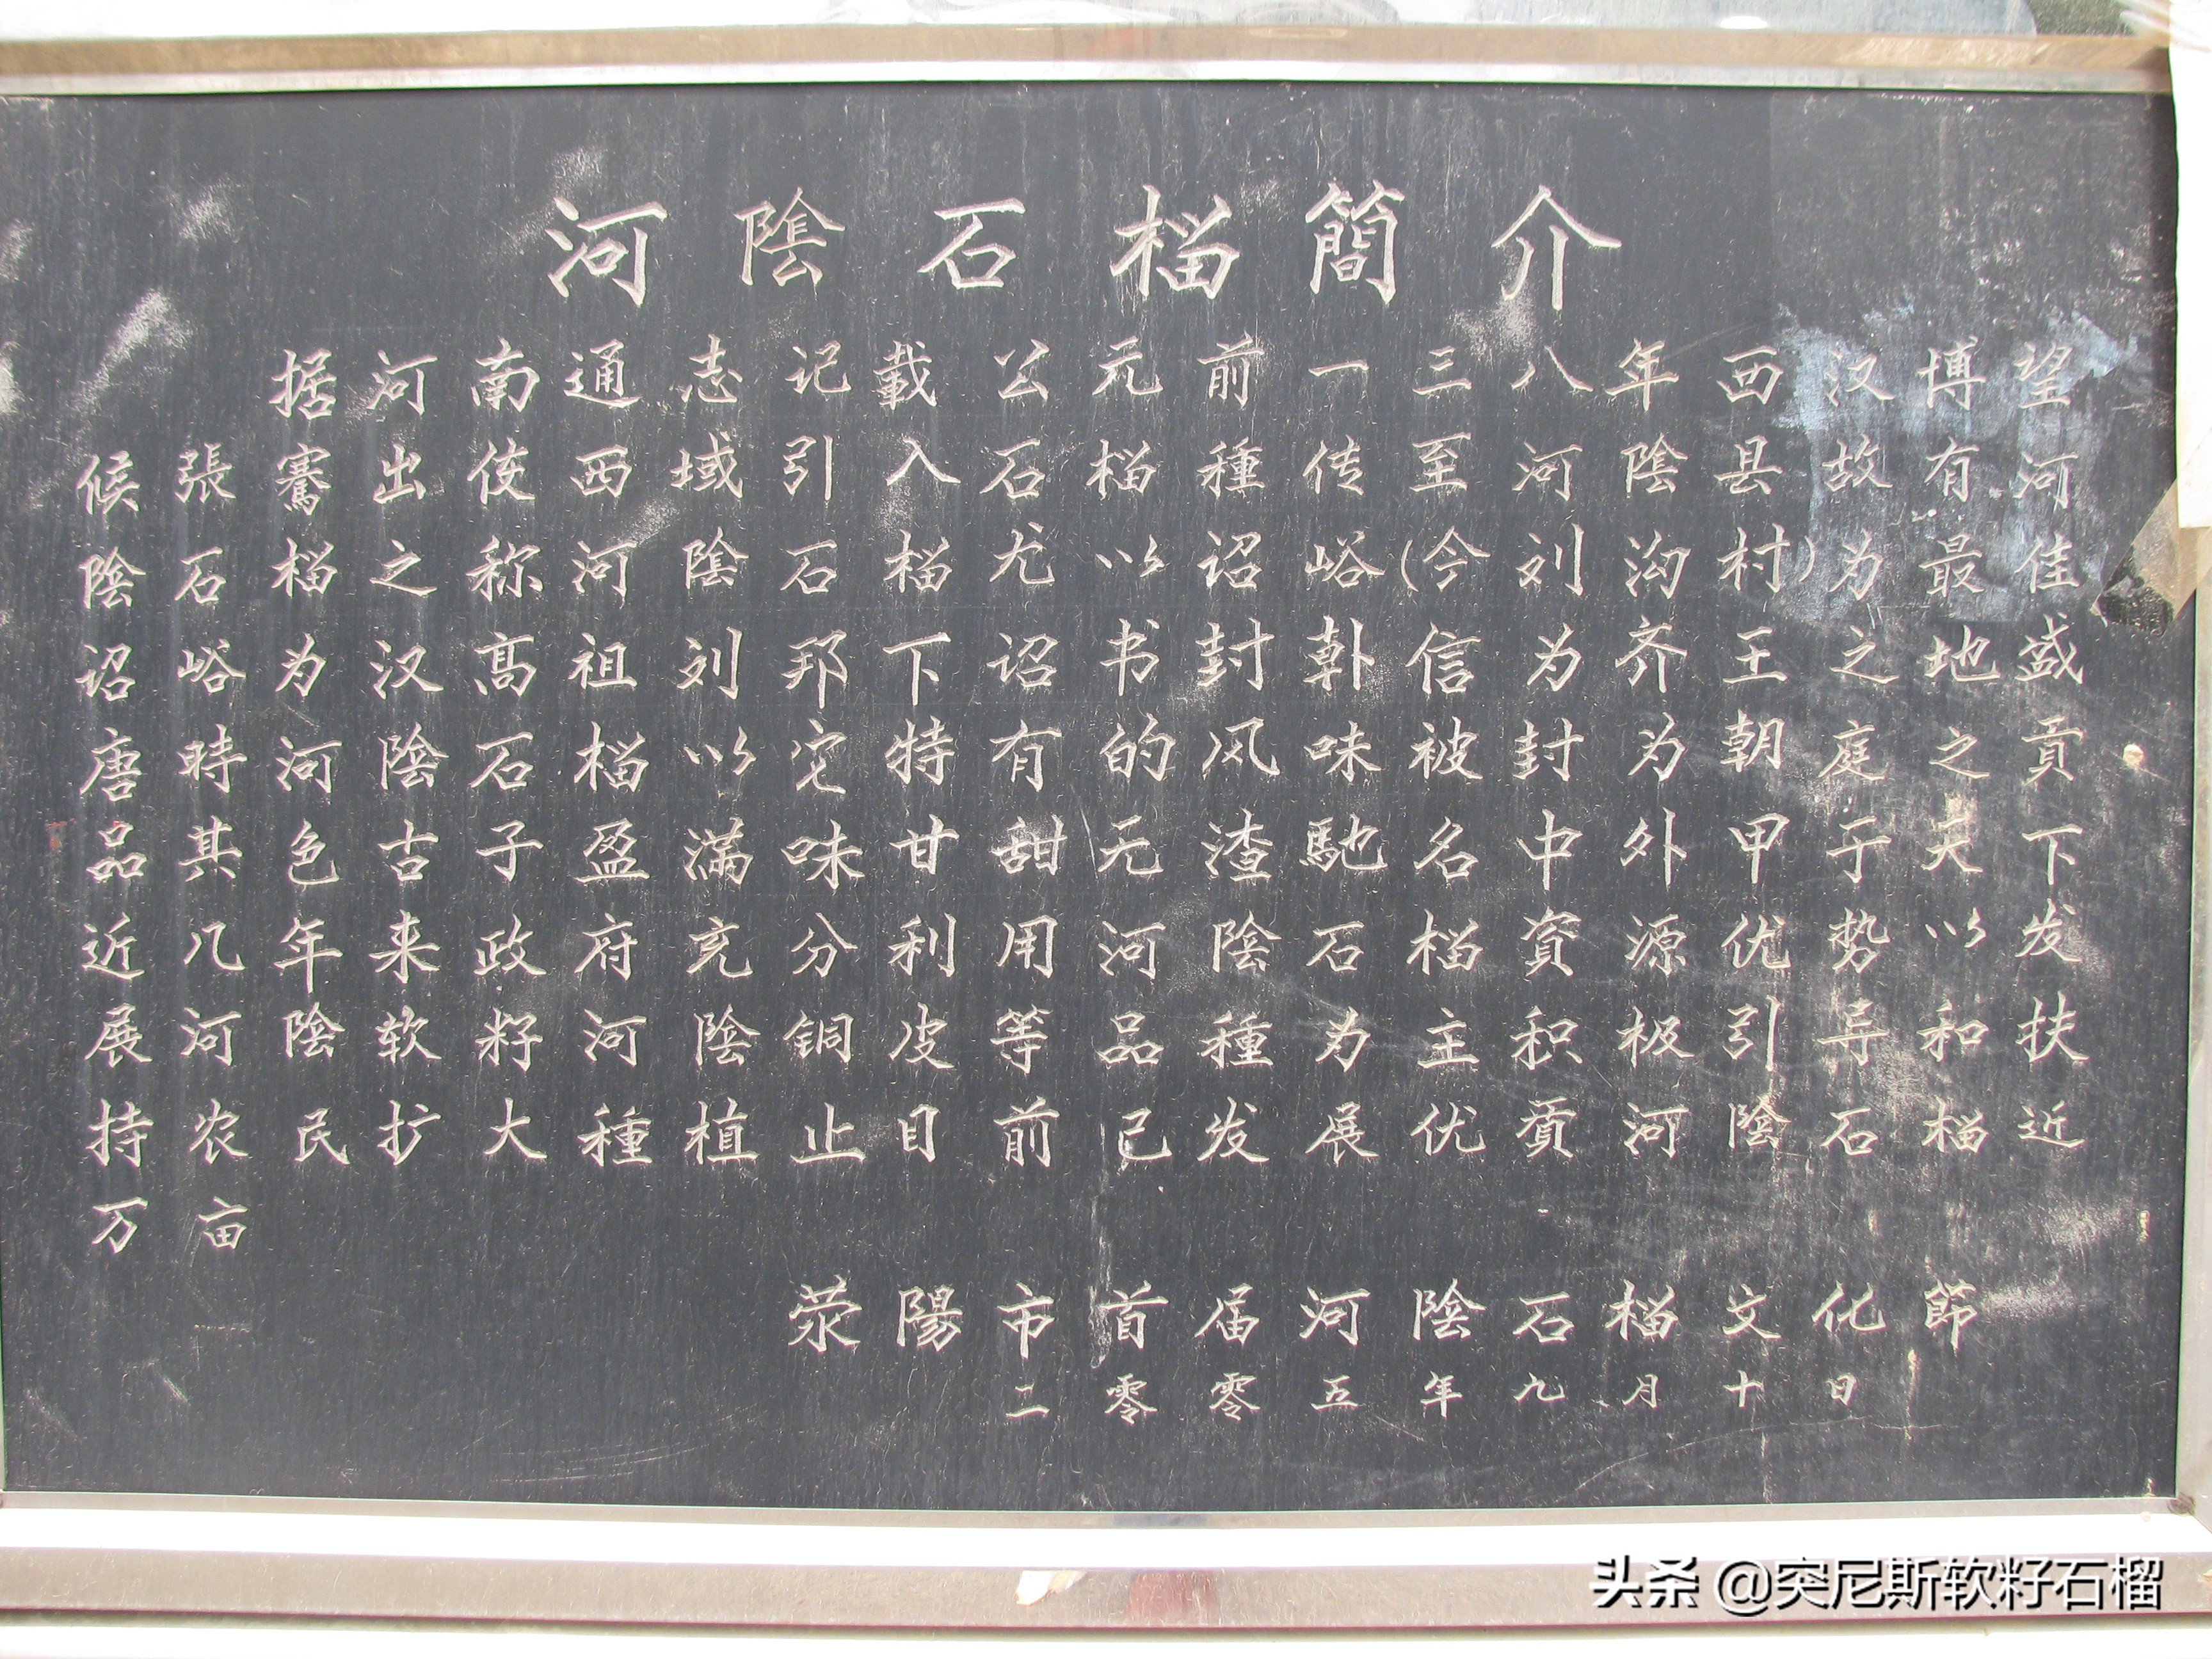 河陰石榴簡介
据河南通志记載公元前一三八年西汉博望
候張騫出使西域引入石榴種传至河陰县故有河
陰石榴之称河陰石榴尤以诏峪(今刘沟村)为最佳
诏峪为汉高祖刘邦下诏书封韩信为齐王之地盛
唐時河陰石榴以它特有的风味被封为朝庭之貢
品其色古子盈滿味甘甜无渣馳名中外甲于天下
近几年来政府充分利用河陰石榴資源优势以发
展河陰软籽河陰铜皮等品種为主积极引导和扶
持农民扩大種植止目前已发展优質河陰石榴近
万亩
荥陽市首届河陰石榴文化節
二零零五年九月十日
头条 @突尼斯软籽石榴